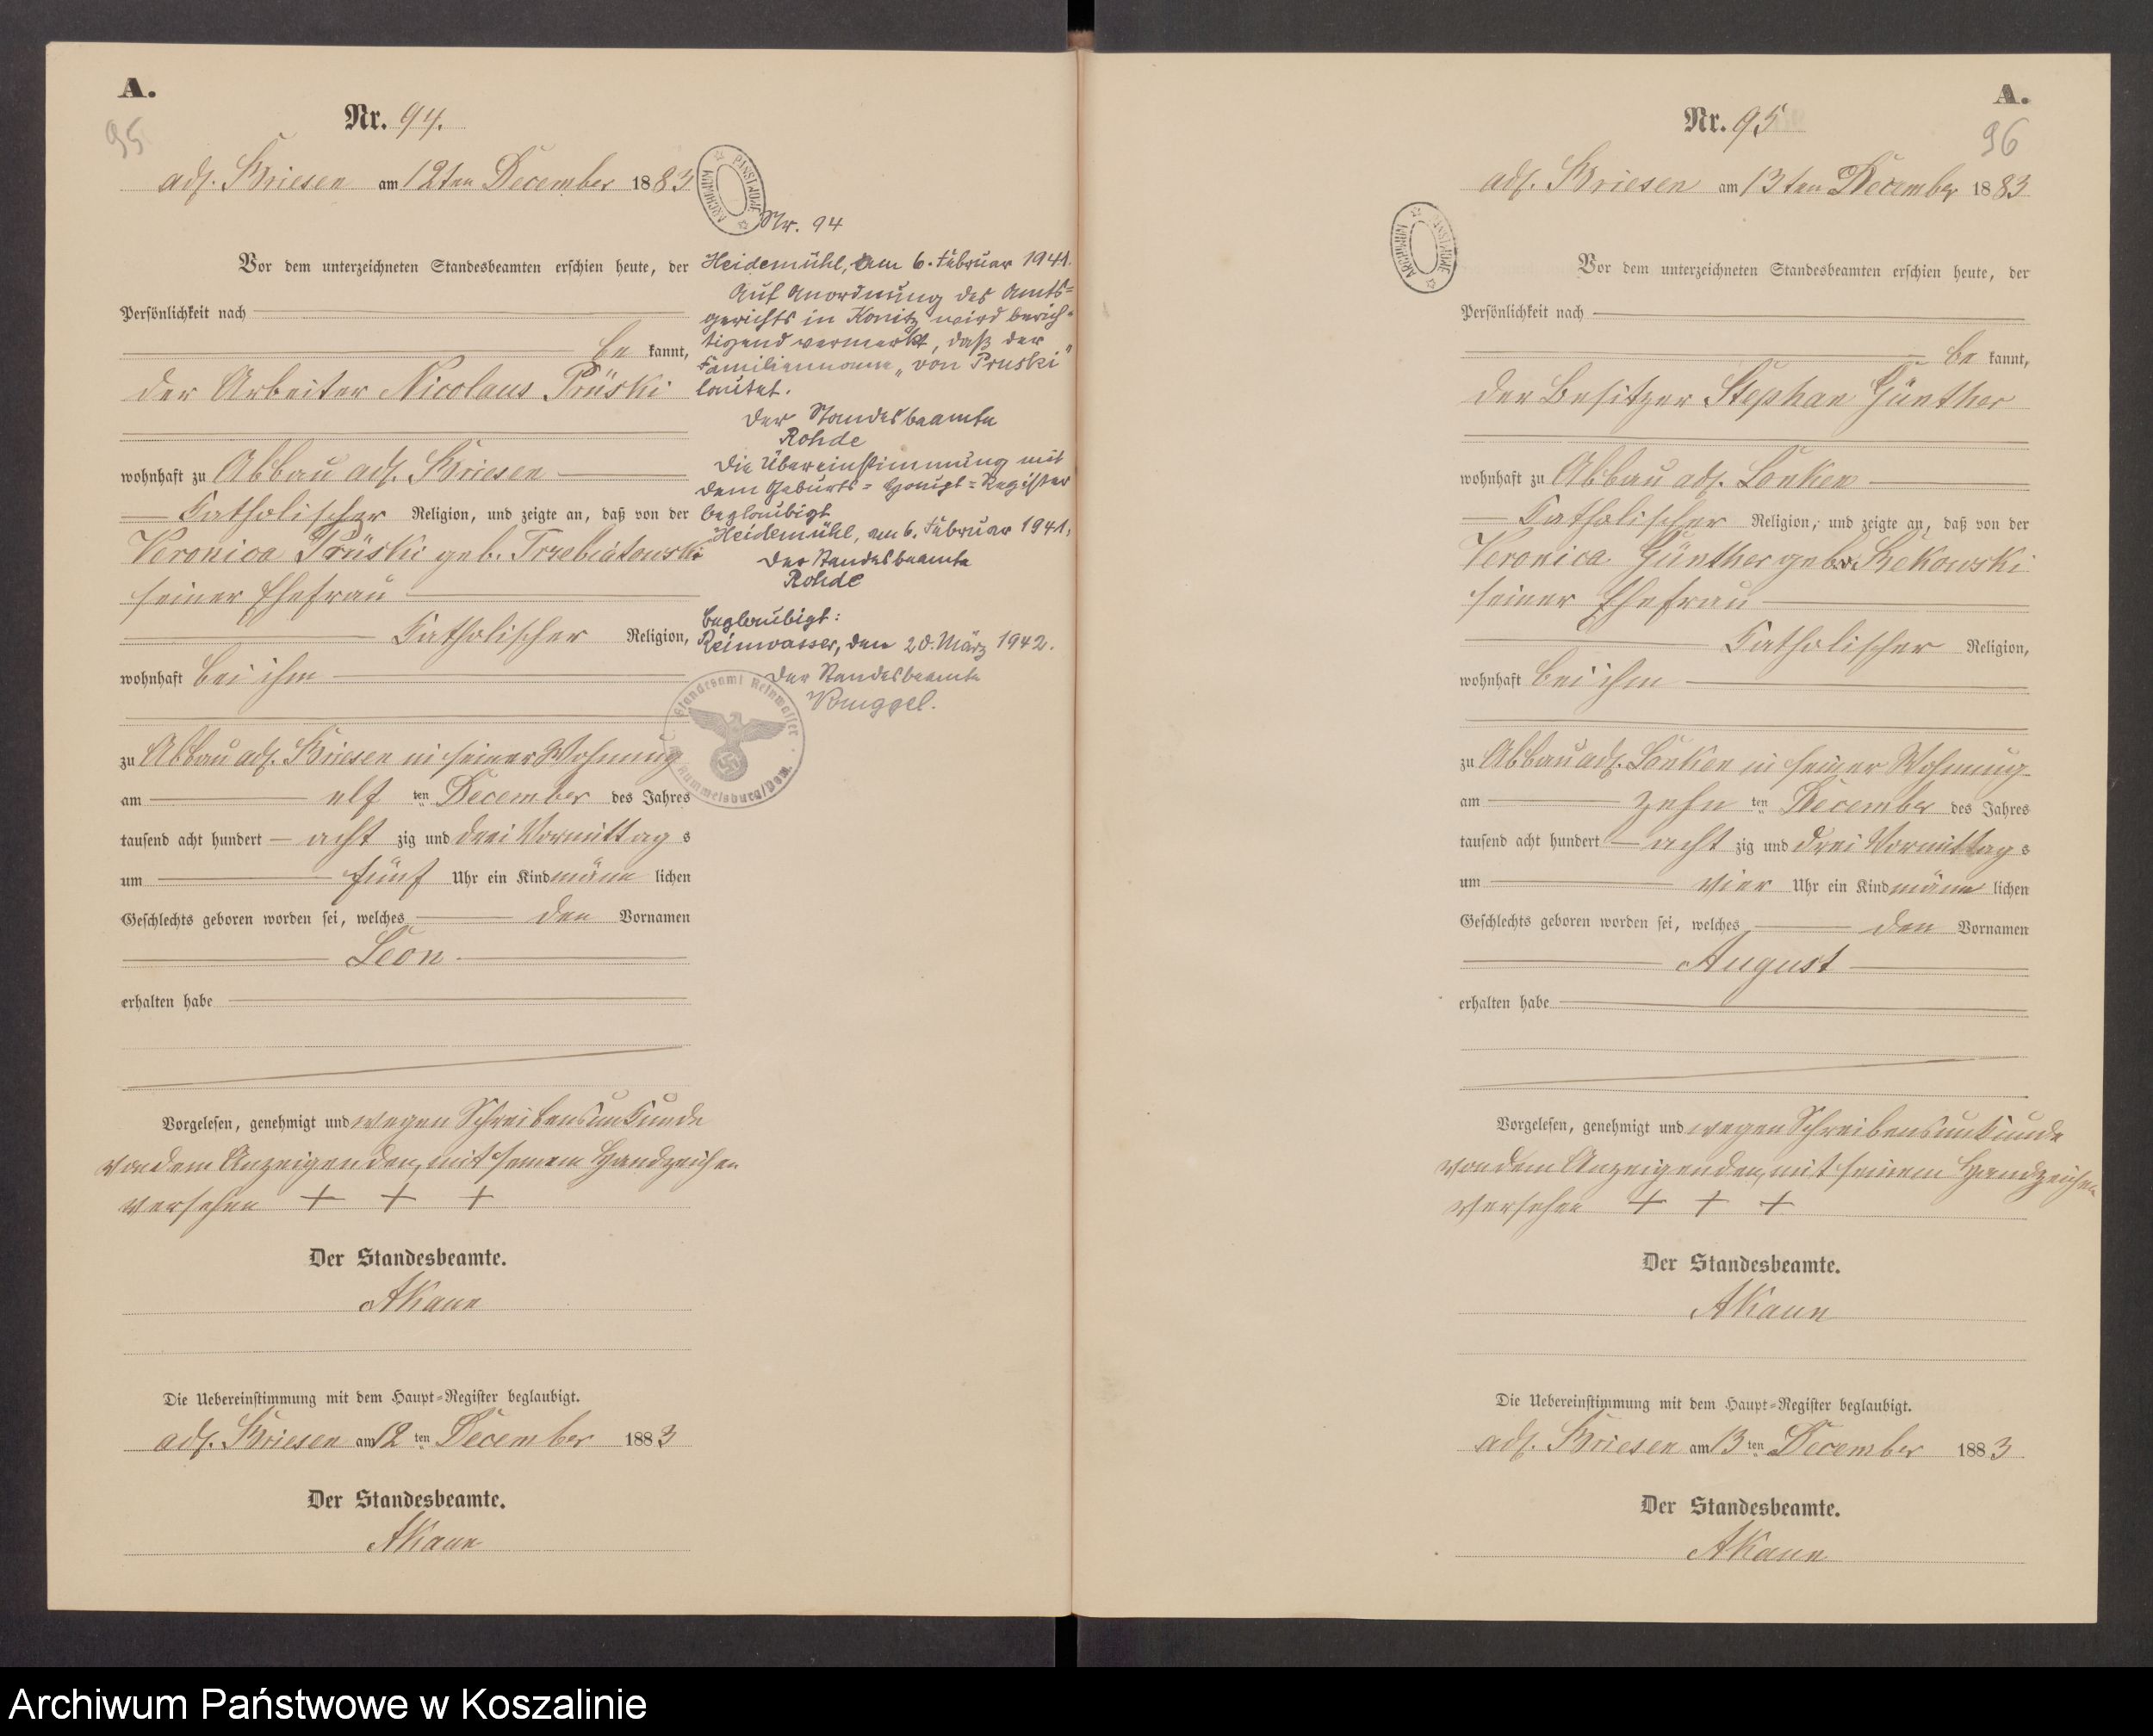 A.
95
Nr. 94.
adl. Briesen am 12ten December 1883
Vor dem unterzeichneten Standesbeamten erschien heute, der
Persönlichkeit nach
be kannt,
der Arbeiter Nicolaus Prüski
wohnhaft zu Abbau adl. Briesen
katholischer Religion, und zeigte an, daß von der
Veronica Prüski geb. Trzebiatowski
seiner Ehefrau
katholischer Religion,
wohnhaft bei ihm
zu Abbau adl. Briesen in seiner Wohnung
am elf ten December des Jahres
tausend acht hundert acht zig und drei Vormittag s
um fünf Uhr ein Kind männ lichen
Geschlechts geboren worden sei, welches den Vornamen
Leon
erhalten habe
Vorgelesen, genehmigt und wegen Schreibensunkunde
von dem Anzeigenden, mit seinem Handzeichen
versehen + + +
Der Standesbeamte.
AKaun
Die Uebereinstimmung mit dem Haupt-Register beglaubigt.
adl. Briesen am 12 ten December 1883
Der Standesbeamte.
AKaun
Nr. 94
Heidemühl, am 6. Februar 1941.
Auf Anordnung des Amts=
gerichts in Konitz wird berich=
tigend vermerkt, daß der
Familienname „von Pruski"
lautet.
Der Standesbeamte
Rohde
Die Übereinstimmung mit
dem Geburts=Haupt=Register
beglaubigt
Heidemühl, am 6. Februar 1941.
Der Standesbeamte
Rohde
Beglaubigt:
Reinwasser, den 20. März 1942.
Der Standesbeamte
Standesamt Reinwasser
Rummelsburg/Pom.
A.
96
Nr. 95
adl. Briesen am 13ten December 1883
Vor dem unterzeichneten Standesbeamten erschien heute, der
Persönlichkeit nach
be kannt,
der Besitzer Stephan Günther
wohnhaft zu Abbau adl. Lonken
katholischer Religion, und zeigte an, daß von der
Veronica Günther geb. v. Rekowski
seiner Ehefrau
katholischer Religion,
wohnhaft bei ihm
zu Abbau adl. Lonken in seiner Wohnung
am zehn ten December des Jahres
tausend acht hundert acht zig und drei Vormittag s
um vier Uhr ein Kind männ lichen
Geschlechts geboren worden sei, welches den Vornamen
August
erhalten habe
Vorgelesen, genehmigt und wegen Schreibensunkunde
von dem Anzeigenden, mit seinem Handzeichen
versehen + + +
Der Standesbeamte.
AKaun
Die Uebereinstimmung mit dem Haupt-Register beglaubigt.
adl. Briesen am 13 ten December 1883
Der Standesbeamte.
AKaun
Archiwum Państwowe w Koszalinie